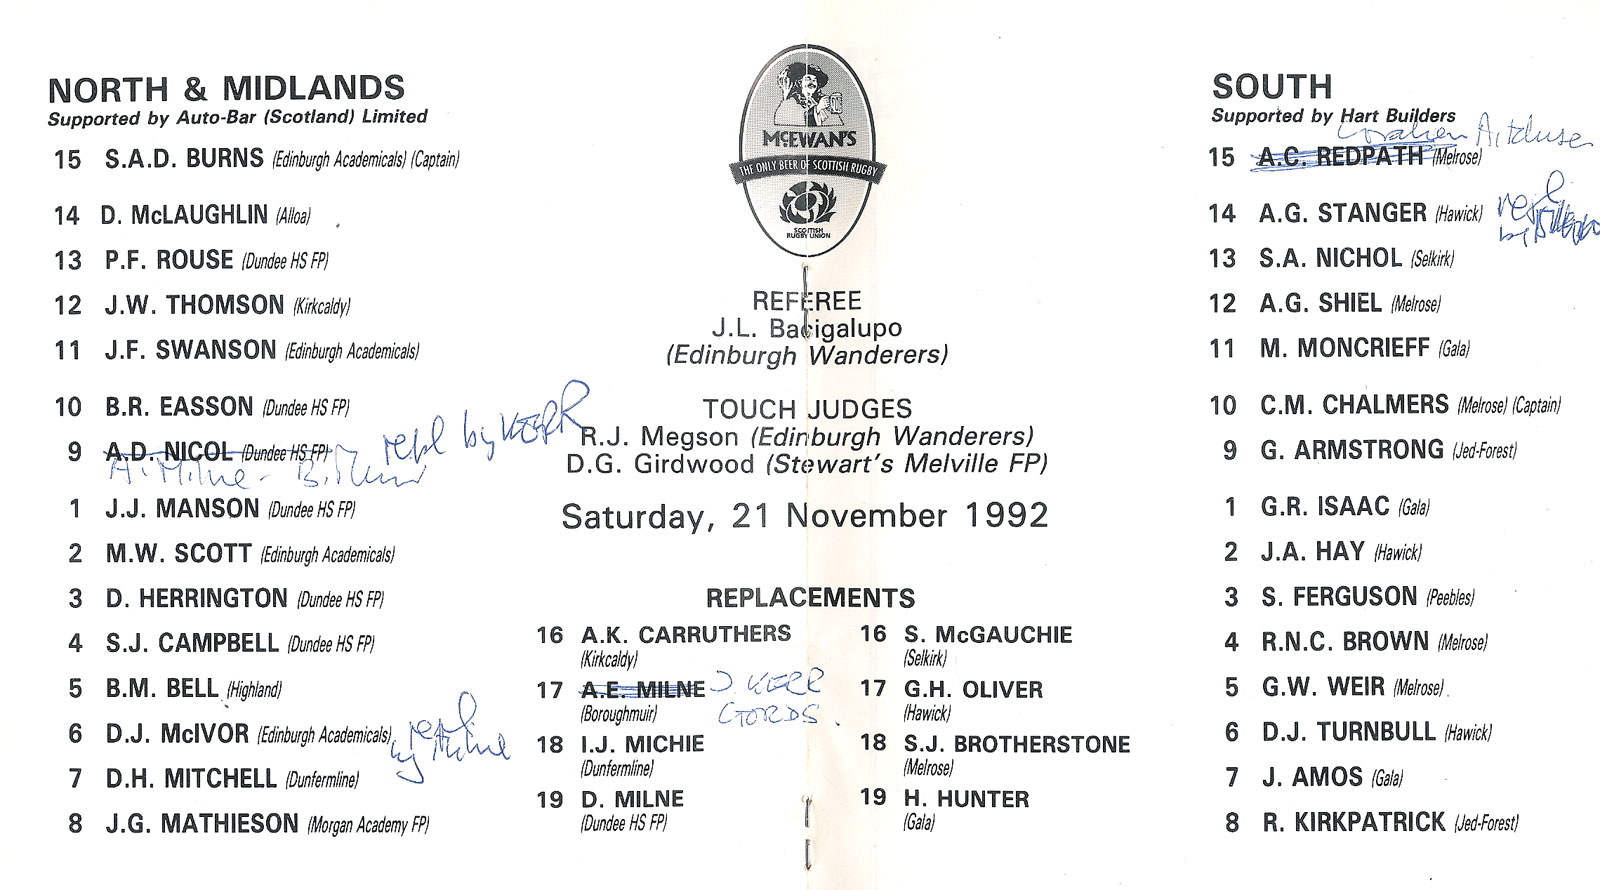 NORTH & MIDLANDS
Supported by Auto-Bar (Scotland) Limited
15 S.A.D. BURNS (Edinburgh Academicals) (Captain)
14 D. McLAUGHLIN (Alloa)
13 P.F. ROUSE (Dundee HS FP)
12 J.W. THOMSON (Kirkcaldy)
11 J.F. SWANSON (Edinburgh Academicals)
10 B.R. EASSON (Dundee HS FP)
9 A.D. NICOL (Dundee HS FP) repl by KERR
A. Milne - B.
1 J.J. MANSON (Dundee HS FP)
2 M.W. SCOTT (Edinburgh Academicals)
3 D. HERRINGTON (Dundee HS FP)
4 S.J. CAMPBELL (Dundee HS FP)
5 B.M. BELL (Highland)
6 D.J. McIVOR (Edinburgh Academicals) repl
by Milne
7 D.H. MITCHELL (Dunfermline)
8 J.G. MATHIESON (Morgan Academy FP)
McEWAN'S
THE ONLY BEER OF SCOTTISH RUGBY
SCOTTISH
RUGBY UNION
REFEREE
J.L. Bacigalupo
(Edinburgh Wanderers)
TOUCH JUDGES
R.J. Megson (Edinburgh Wanderers)
D.G. Girdwood (Stewart's Melville FP)
Saturday, 21 November 1992
REPLACEMENTS
16 A.K. CARRUTHERS
(Kirkcaldy)
17 A.E. MILNE J. KERR
(Boroughmuir) GORDS.
18 I.J. MICHIE
(Dunfermline)
19 D. MILNE
(Dundee HS FP)
16 S. McGAUCHIE
(Selkirk)
17 G.H. OLIVER
(Hawick)
18 S.J. BROTHERSTONE
(Melrose)
19 H. HUNTER
(Gala)
SOUTH
Supported by Hart Builders
15 A.C. REDPATH (Melrose)
14 A.G. STANGER (Hawick) repl
by
13 S.A. NICHOL (Selkirk)
12 A.G. SHIEL (Melrose)
11 M. MONCRIEFF (Gala)
10 C.M. CHALMERS (Melrose) (Captain)
9 G. ARMSTRONG (Jed-Forest)
1 G.R. ISAAC (Gala)
2 J.A. HAY (Hawick)
3 S. FERGUSON (Peebles)
4 R.N.C. BROWN (Melrose)
5 G.W. WEIR (Melrose)
6 D.J. TURNBULL (Hawick)
7 J. AMOS (Gala)
8 R. KIRKPATRICK (Jed-Forest)